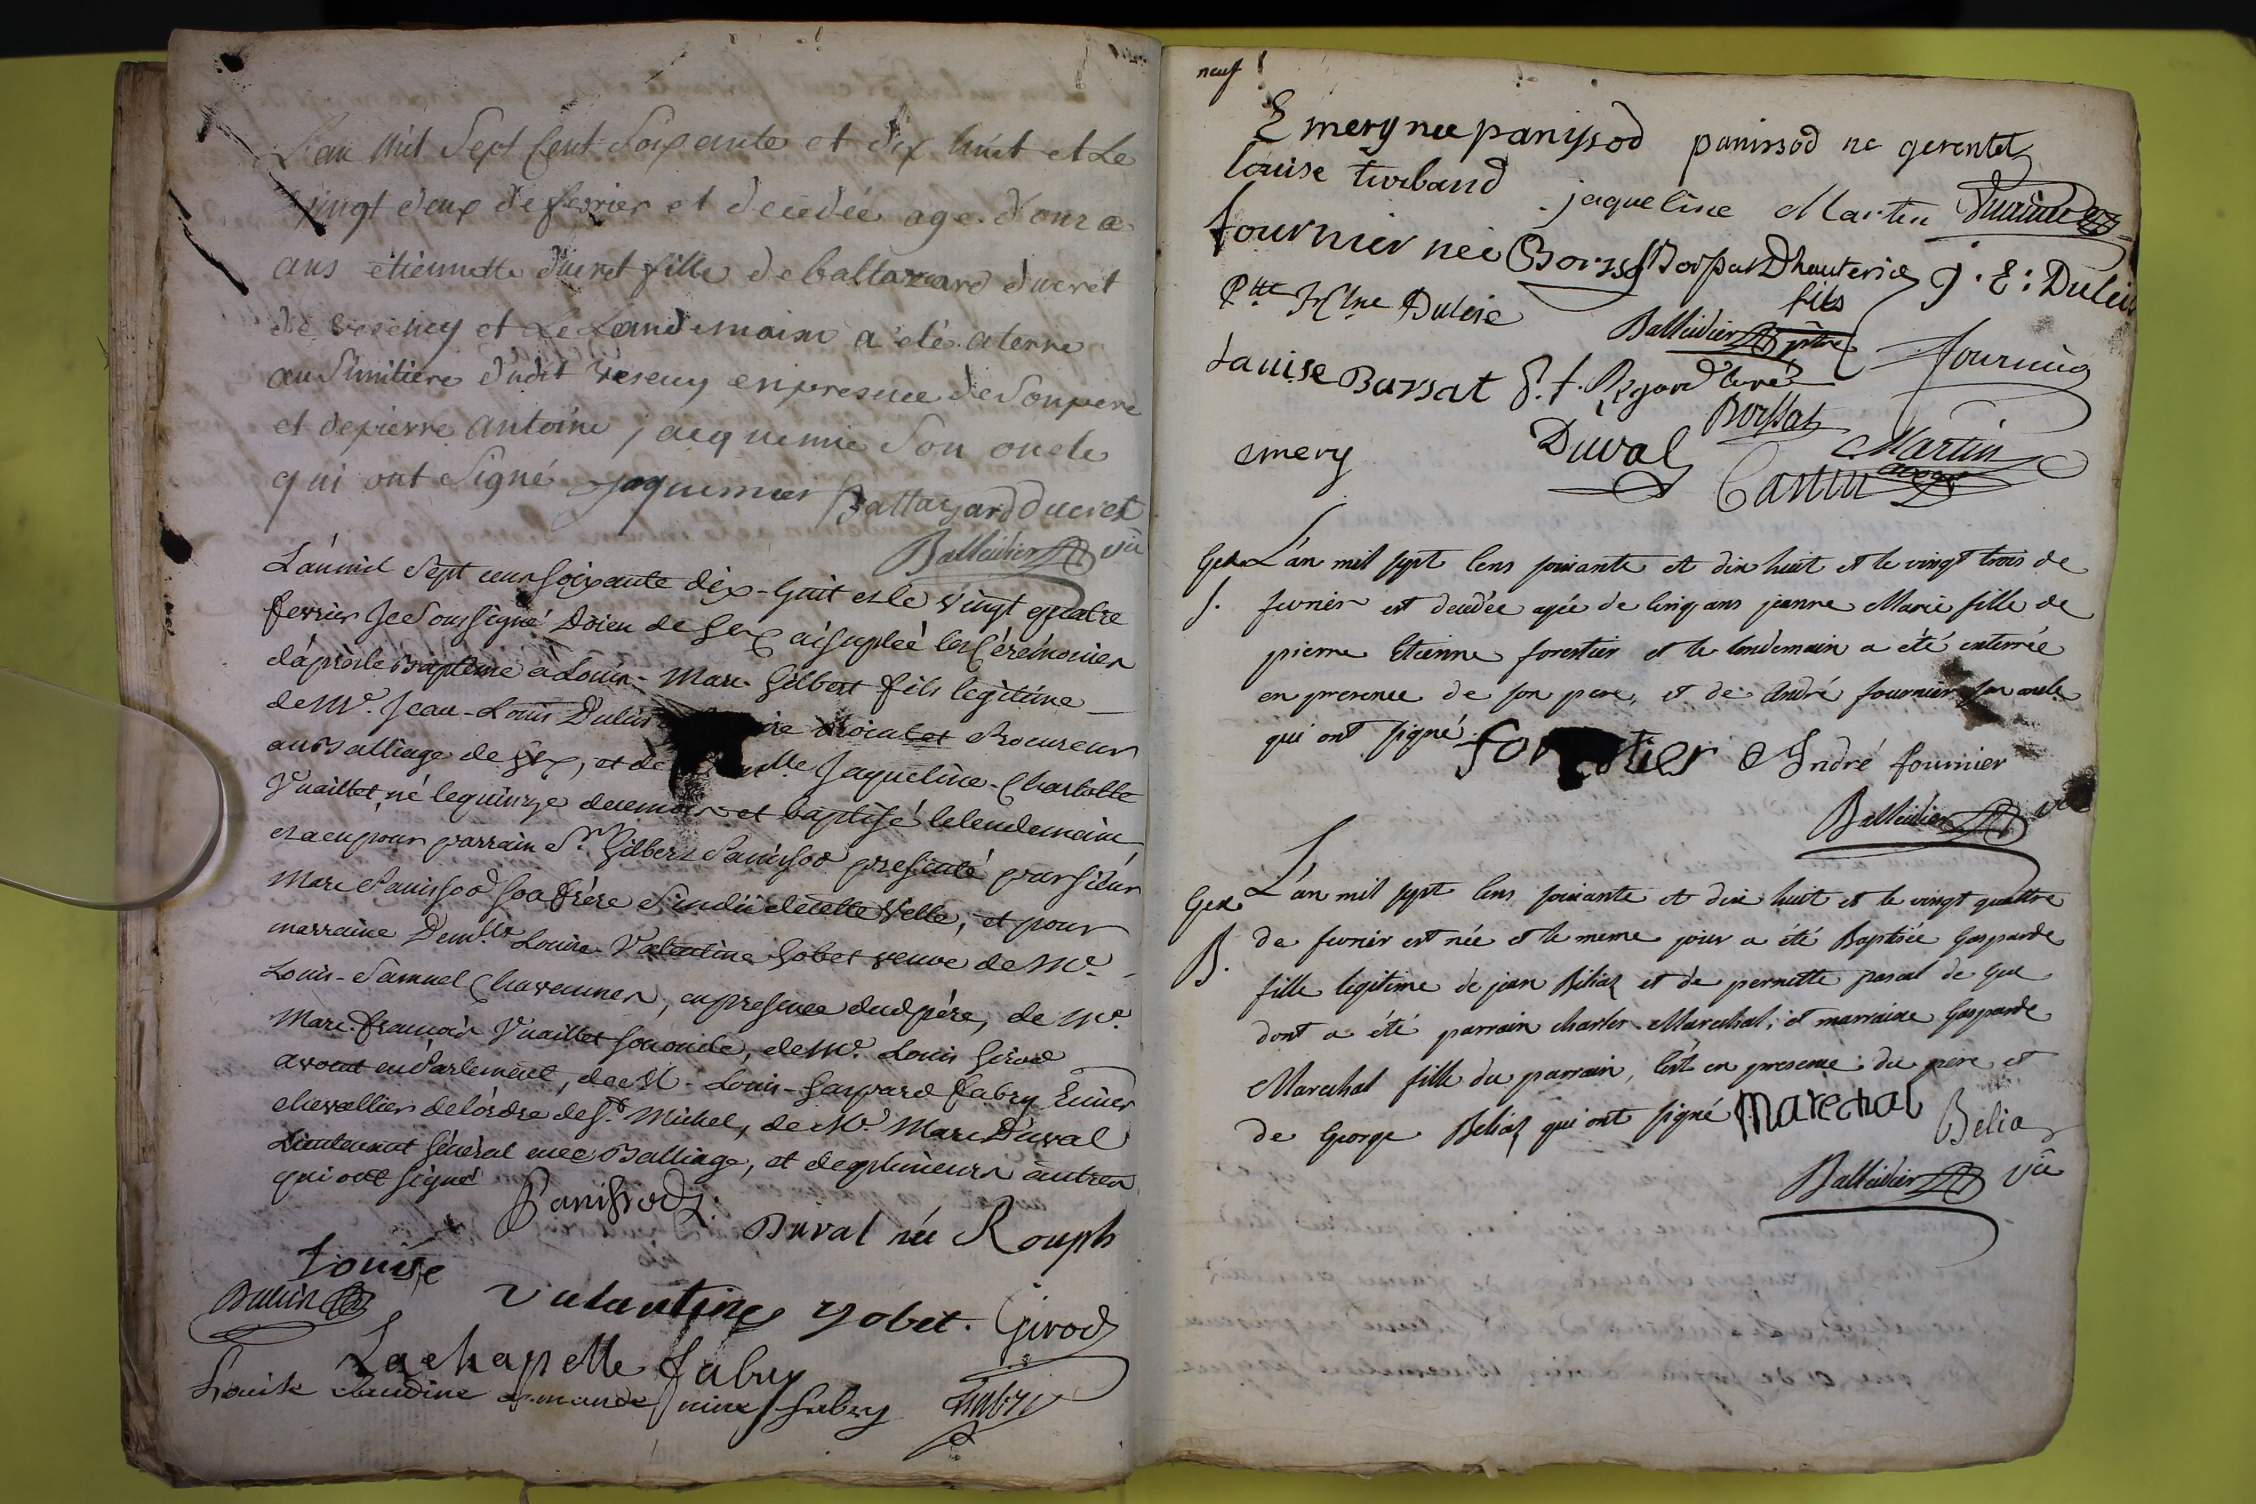 L'an mil Sept Cent Soixante et dix huit et Le
vingt deux de fevrier et decedée age d'onze
ans étiennette ducret fille de baltazard ducret
de vesency et Le Landemain a été aterre
au Simitiere dudit vesency en presence de Son pere
et de pierre Antoine jacquemie Son oncle
qui ont Signé Jaquemier Baltazard ducret
Balleidier vic
L'an mil Sept cent soixante dix-huit et le vingt quatre
fevrier Je Soussigné Doien de Gex ai supleé les Cérémonies
d'après le Baptême à Louis-Marc Gilbert fils legitime
de Mr. Jean-Louis Dulin avocat et Procureur
au Balliage de Gex, et de Jaqueline-Charlotte
Vuaillet, né le quinze du mois et baptisé le lendemain
et a eu pour parrain Sr. Gilbert Panissod presenté par Sieur
Marc Panissod son frère Sindic de cette Ville, et pour
marraine Demlle Louise-Valentine Gobet veuve de Mr.
Louis-Samuel Chavannes, en presence dud père, de Mr.
Marc-François Vuaillet son oncle, de Mr. Louis Girod
avocat en Parlement, de M. Louis-Gaspard Fabry Ecuier
chevallier de l'ordre de St. Michel, de Mr. Marc Duval
Lieutenant Général au Balliage, et de plusieurs autres
qui ont signé Panissod
Duval née Rouph
Louise Valantine gobet. Girod
Dulin
Lachapelle fabry
Louise Claudine fabry
fabry
neuf
Emery nee panissod panissod ne gerentet
louise turband jaqueline Martin
fournier neé Borssat Borssat Dhauterive J. E: Dulin
Dulin fils
Balleidier ptre fournier
Louise Borsat Regard Curé
Borssat
emery Duval Martin
Castin
Gex L'an mil sept cens soixante et dix huit et le vingt trois de
S. fevrier est decedée agée de cinq ans jeanne Marie fille de
pierre Etienne forestier et le lendemain a été enterrée
en presence de son pere, et de André fournier son oncle
qui ont signé. forestier André fournier
Balleidier vic
Gex L'an mil sept cens soixante et dix huit et le vingt quattre
B. de fevrier est née et le meme jour a été Baptisée Gasparde
fille legitime de jean Béliaz et de pernette pascal de Gex
dont a été parrain charles Marechal, et marraine Gasparde
Marechal fille du parrain, le tout en presence du pere et
de George Béliaz qui ont signé Marechal Belia
Balleidier vic